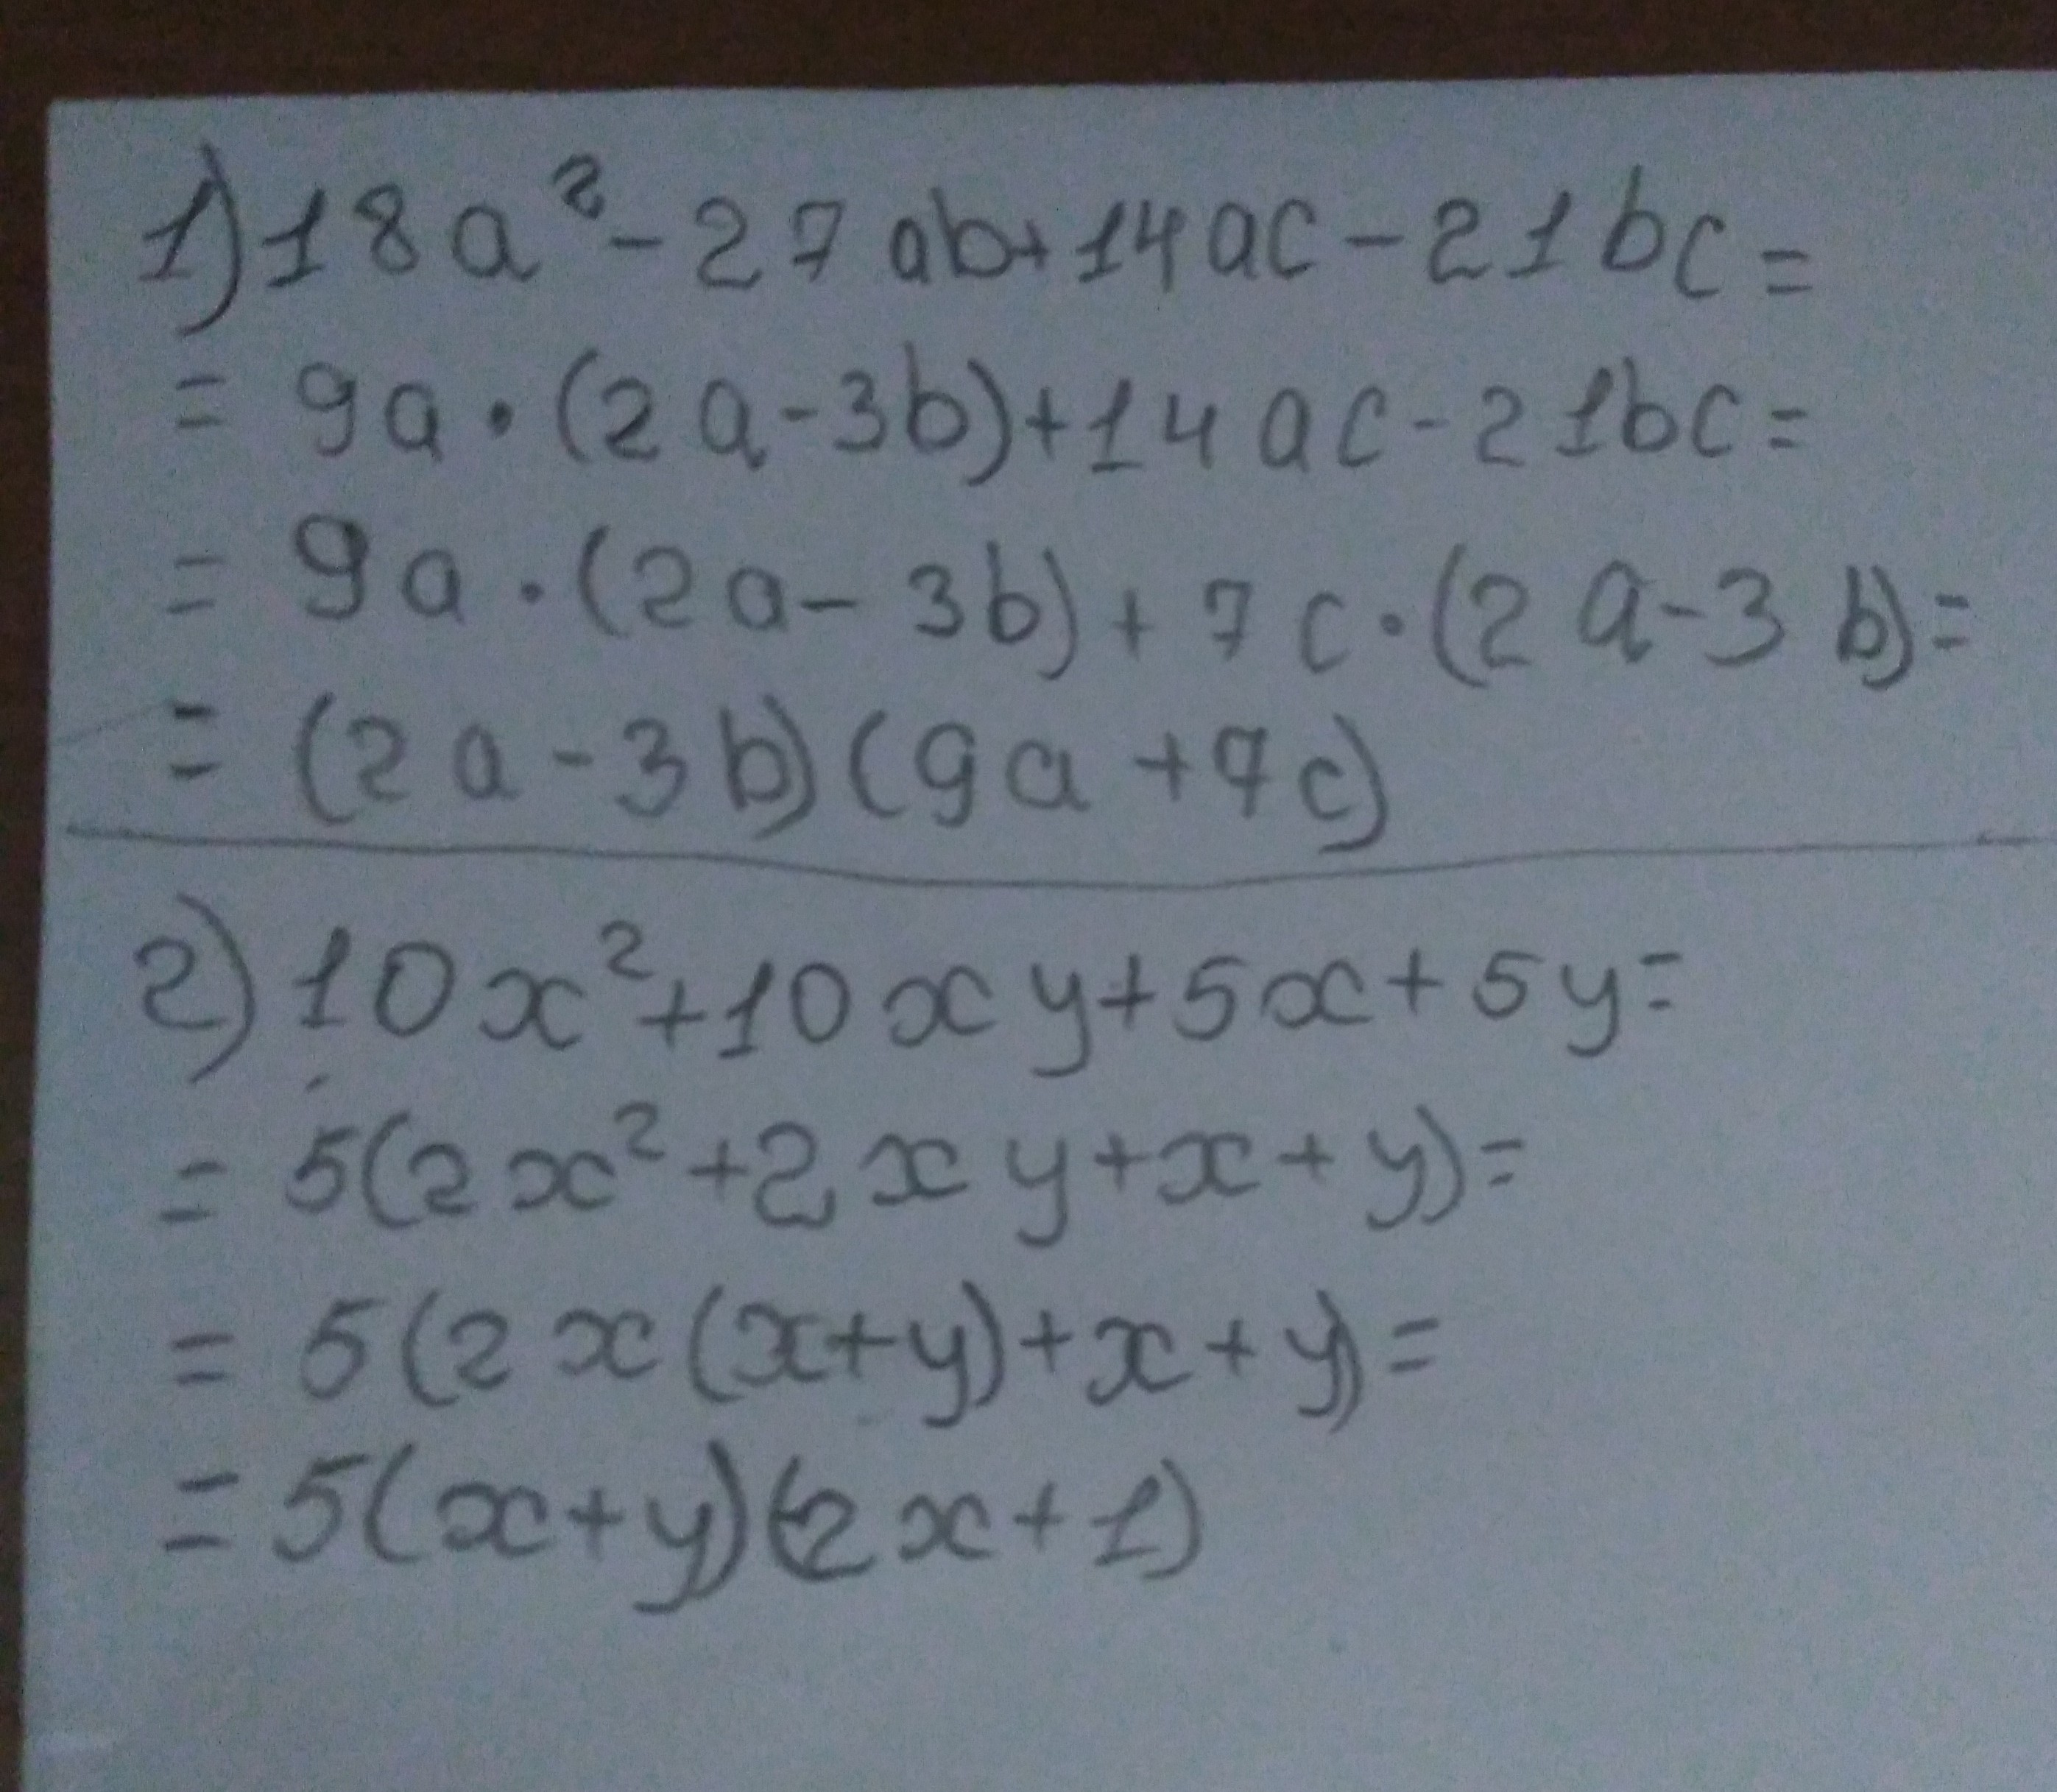 1) 18a² - 27ab + 14ac - 21bc =
= 9a · (2a - 3b) + 14ac - 21bc =
= 9a · (2a - 3b) + 7c · (2a - 3b) =
= (2a - 3b) (9a + 7c)
2) 10x² + 10xy + 5x + 5y =
= 5(2x² + 2xy + x + y) =
= 5(2x(x + y) + x + y) =
= 5(x + y)(2x + 1)